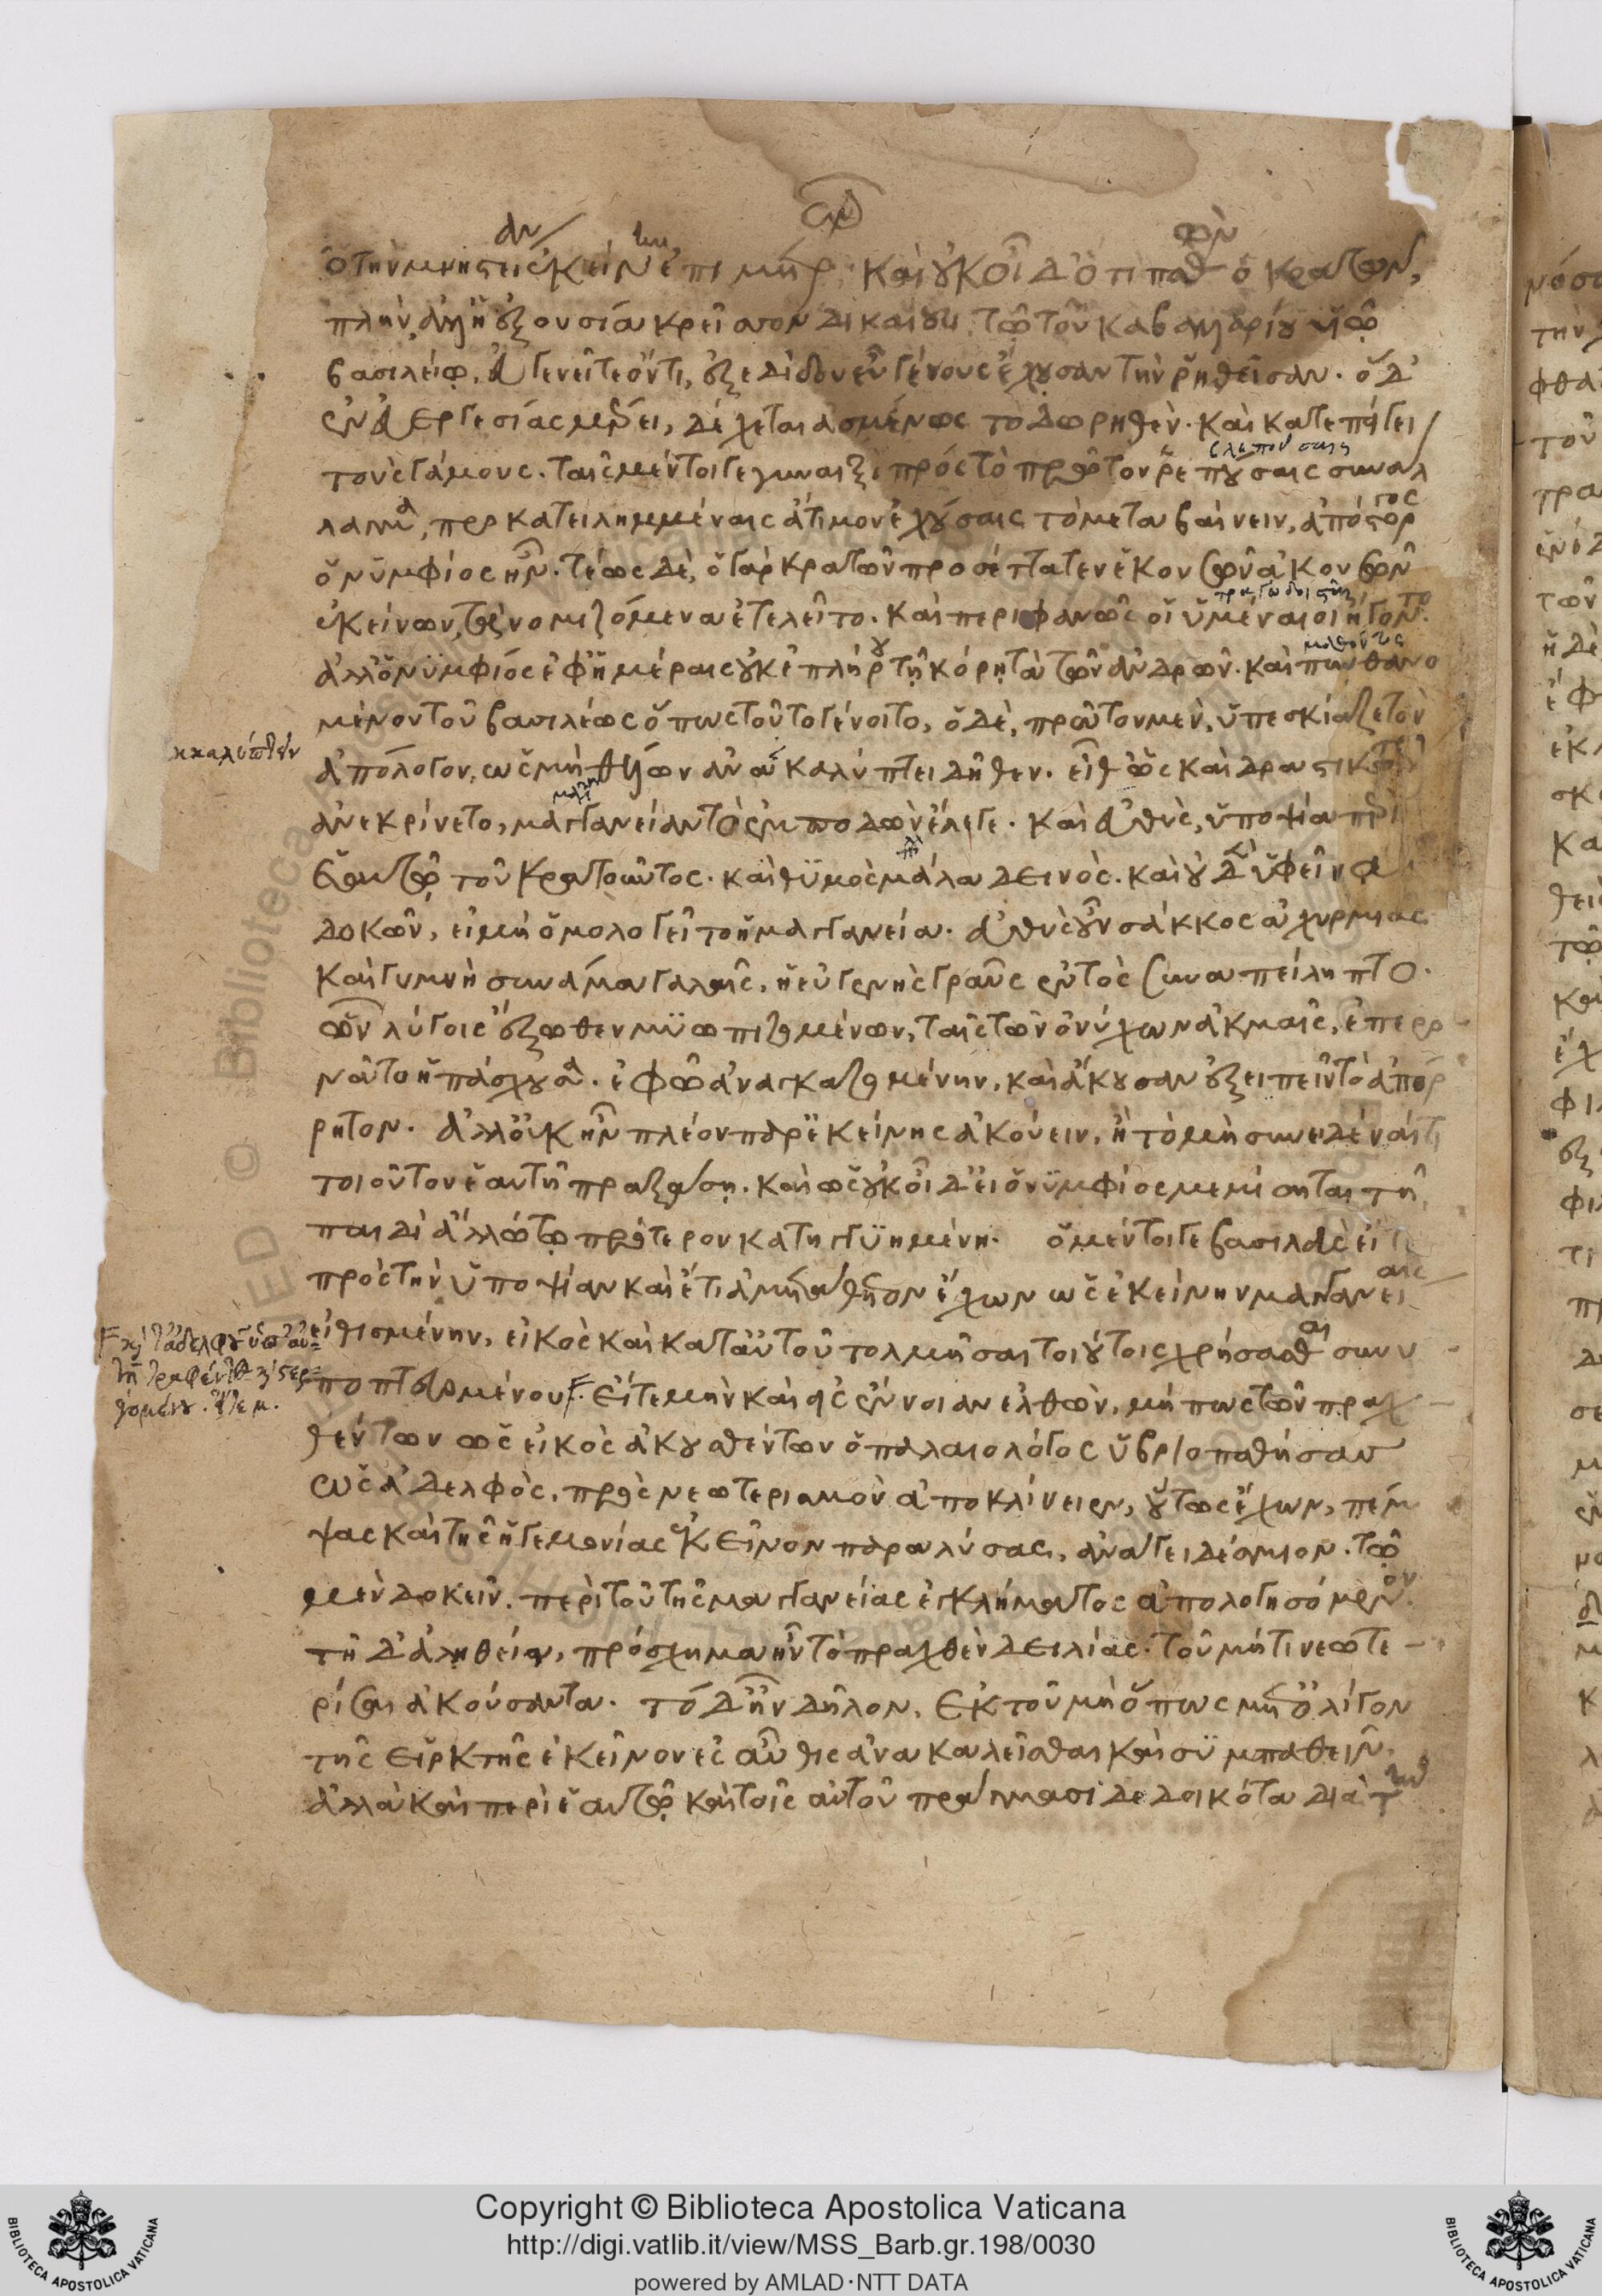 πλὴν ἀλλ' ἡ ἐξουσία κρεῖσσον δικαίου. τῷ τοῦ καβαλλαρίου υἱῷ
βασιλείῳ, εὐγενεῖ τε ὄντι, ἐξεδίδουν εὖ γένους ἔχουσαν τὴν ῥηθεῖσαν. ὁ δ'
ἐν εὐεργεσίας μέρει, δέχεται ἀσμένως τὸ δωρηθέν. καὶ κατεπάγει
τοὺς γάμους. ταῖς μέντοιγε γυναιξὶ πρὸς τὸ πρῶτον ῥεπούσαις συναλ
βλεπούσαις
λαγμα, περκατειλημμέναις ἄτιμον ἐχούσαις τὸ μεταβαίνειν, ἀπόστοργος
ὁ νυμφίος ἦν. τέως δὲ, ὃ γὰρ κρατῶν προσέταττεν ἑκόντων ἀκόντων
ἐκείνων, τὰ νομιζόμενα ἐτελεῖτο. καὶ περιφανῶς οἱ ὑμέναιοι ἤγοντο.
ἀλλ' ὁ νυμφίος ἐφ' ἡμέραις οὐκ ἐπλήρου τῇ κόρῃ τὰ τῶν ἀνδρῶν. καὶ πυνθανο
μένου τοῦ βασιλέως ὅπως τοῦτο γένοιτο, ὁ δὲ, πρῶτον μὲν, ὑπεσκίαζε τὸν
ἀπόλογον, ὡς μὴ θέλων ἀνακαλύπτει δῆθεν. εἶθ' ὡς καὶ δραστικῶς
ἀνεκρίνετο, μαγγανείαν τὸ ἐμποδὼν ἔλεγε. καὶ εὐθὺς, ὑποψία περὶ
ἑαυτῷ τοῦ κρατοῦντος. καὶ θυμὸς μάλα δεινός. καὶ οὐδ' ὑφεῖνα
δοκῶν, εἰ μὴ ὁμολογεῖτο ἡ μαγγανεία. εὐθὺς οὖν σάκκος αὐχυρμιας
καὶ γυμνὴ συνάμα γαλαῖς, ἡ εὐγενὴς γραῦς ἐντὸς συναπείληπτο.
ὧν λύγοις ἔξωθεν μυωπιζομένων, ταῖς τῶν ὀνύχων ἀκμαῖς, ἐπερο
νᾶτο ἡ πάσχουσα. ἐφ' ᾧ ἀναγκαζομένην, καὶ ἄκουσαν ἐξειπεῖν τὸ ἀπόρ
ρητον. ἀλλ' οὐκ ἦν πλέον παρ' ἐκείνης ἀκούειν, ἢ τὸ μὴ συνειδέναι τι
τοιοῦτον ἑαυτῇ πραξάσῃ. καὶ ὡς οὐκ οἶδ' εἰ ὁ νυμφίος μεμίσηται τῇ
παιδὶ ἄλλῳ τῳ πρότερον κατηγγυημένη. ὁ μέντοιγε βασιλεὺς εἴτε
πρὸς τὴν ὑποψίαν καὶ ἔτι ἀμφίβολον ἔχων ὡς ἐκείνην μαγγανείαις
εἰθισμένην, εἰκὸς καὶ κατ' αὐτοῦ τολμῆσαι τοιούτοις χρήσασθαι συνυ
ποπτευομένου. εἴτε μὴν καὶ εἰς ἔννοιαν ἐλθὼν, μή πως τῶν πραχ
θέντων ὡς εἰκὸς ἀκουσθέντων ὁ παλαιολόγος ὑβριοπαθήσας
ὡς ἀδελφὸς, πρὸς νεωτερισμὸν ἀποκλίνειεν, οὕτως ἔχων, πέμ
ψας καὶ τῆς ἡγεμονίας ἐκεῖνον παραλύσας, ἀνάγει δέσμιον. τῷ
μὲν δοκεῖν. περὶ τοῦ τῆς μαγγανείας ἐγκλήματος ἀπολογησόμενον.
τῇ δ' ἀληθείᾳ, πρόσχημα ἦν τὸ πραχθὲν δειλίας. τοῦ μή τι νεωτε
ρίσαι ἀκούσαντα. τὸ δ' ἦν δῆλον, ἐκ τοῦ μὴ ὅπως μετ' ὀλίγον
τῆς εἱρκτῆς ἐκεῖνον ἐς αὖθις ἀνακαλεῖσθαι καὶ συμπαθεῖν.
ἀλλὰ καὶ περὶ ἑαυτῷ καὶ τοῖς αὐτοῦ πράγμασι δεδοικότα διὰ τ
Copyright © Biblioteca Apostolica Vaticana
http://digi.vatlib.it/view/MSS_Barb.gr.198/0030
powered by AMLAD·NTT DATA
BIBLIOTECA APOSTOLICA VATICANA
BIBLIOTECA APOSTOLICA VATICANA